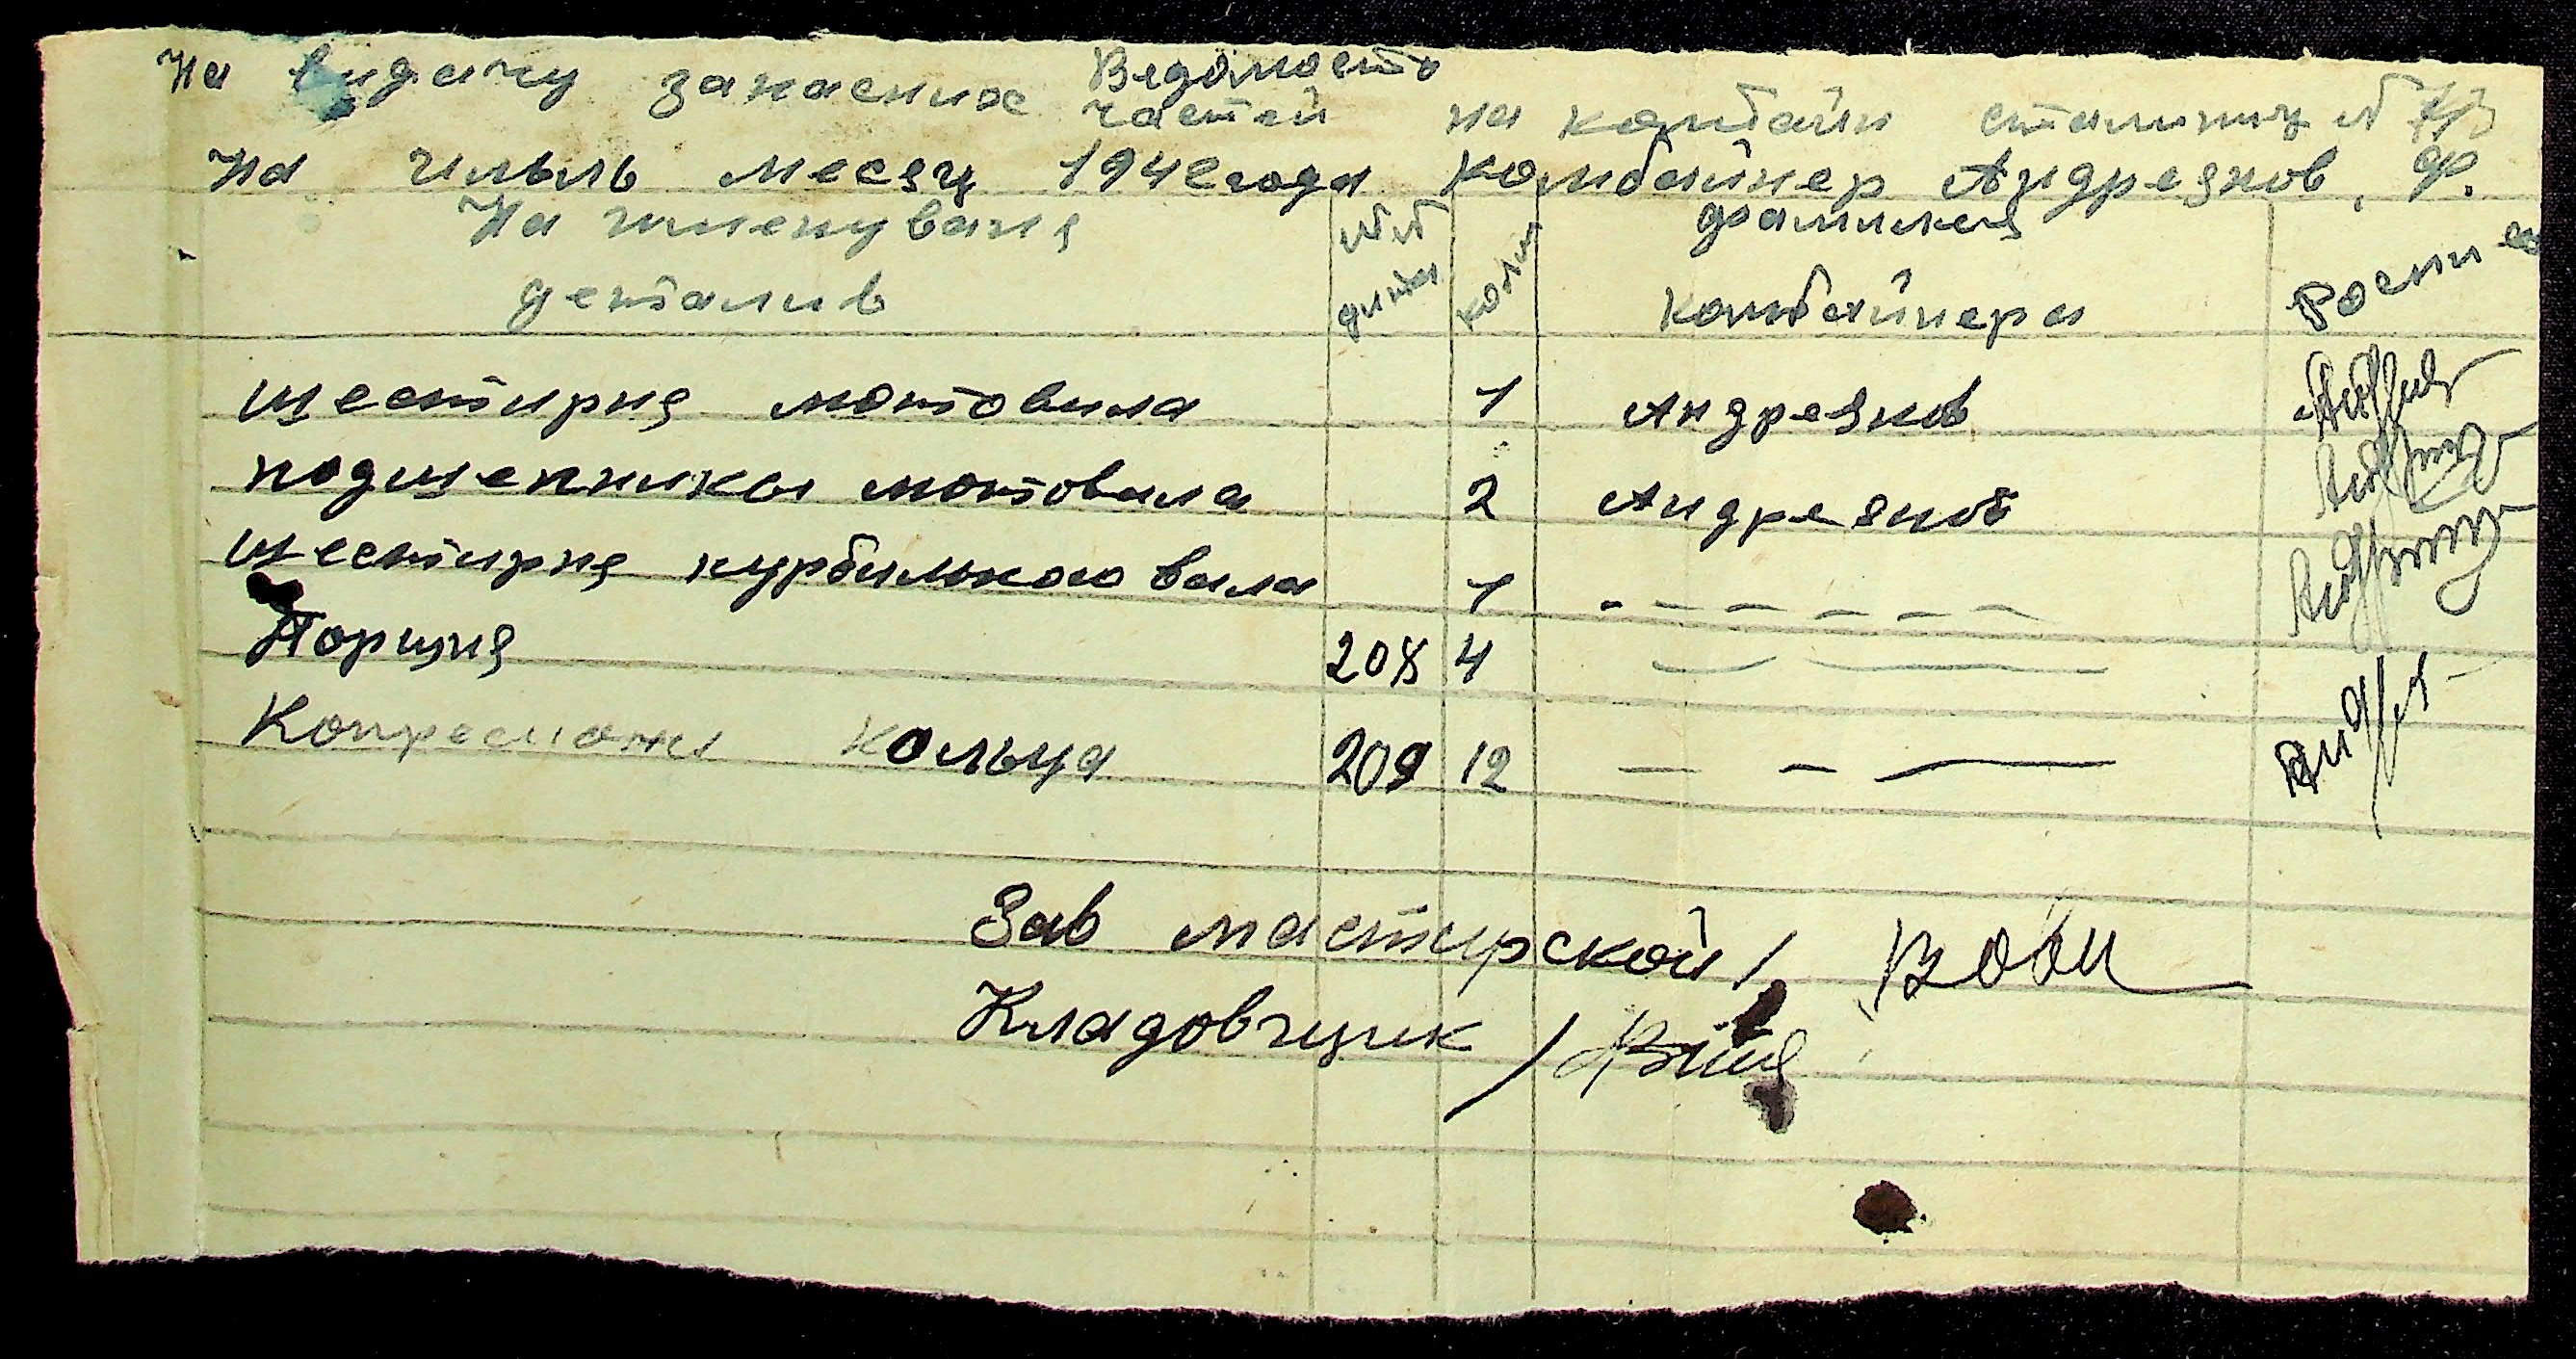 Ведомость
На видачу запасних частей на комбайн сталинец №
На июль месяц 194 года Комбайнер Андреянов, Ф.
На именуваня деталив
№№ дитал
колич
фамилея комбайнера
Роспис
шестирня мотовила 1 Андреянов
подшепники мотовила 2 Андреянов
шестирня курбилького вала 1 - - - - - -
Поршня 208 4 — —
Копресионы кольца 209 12 — — —
Зав мастирской /
Кладовчщик /